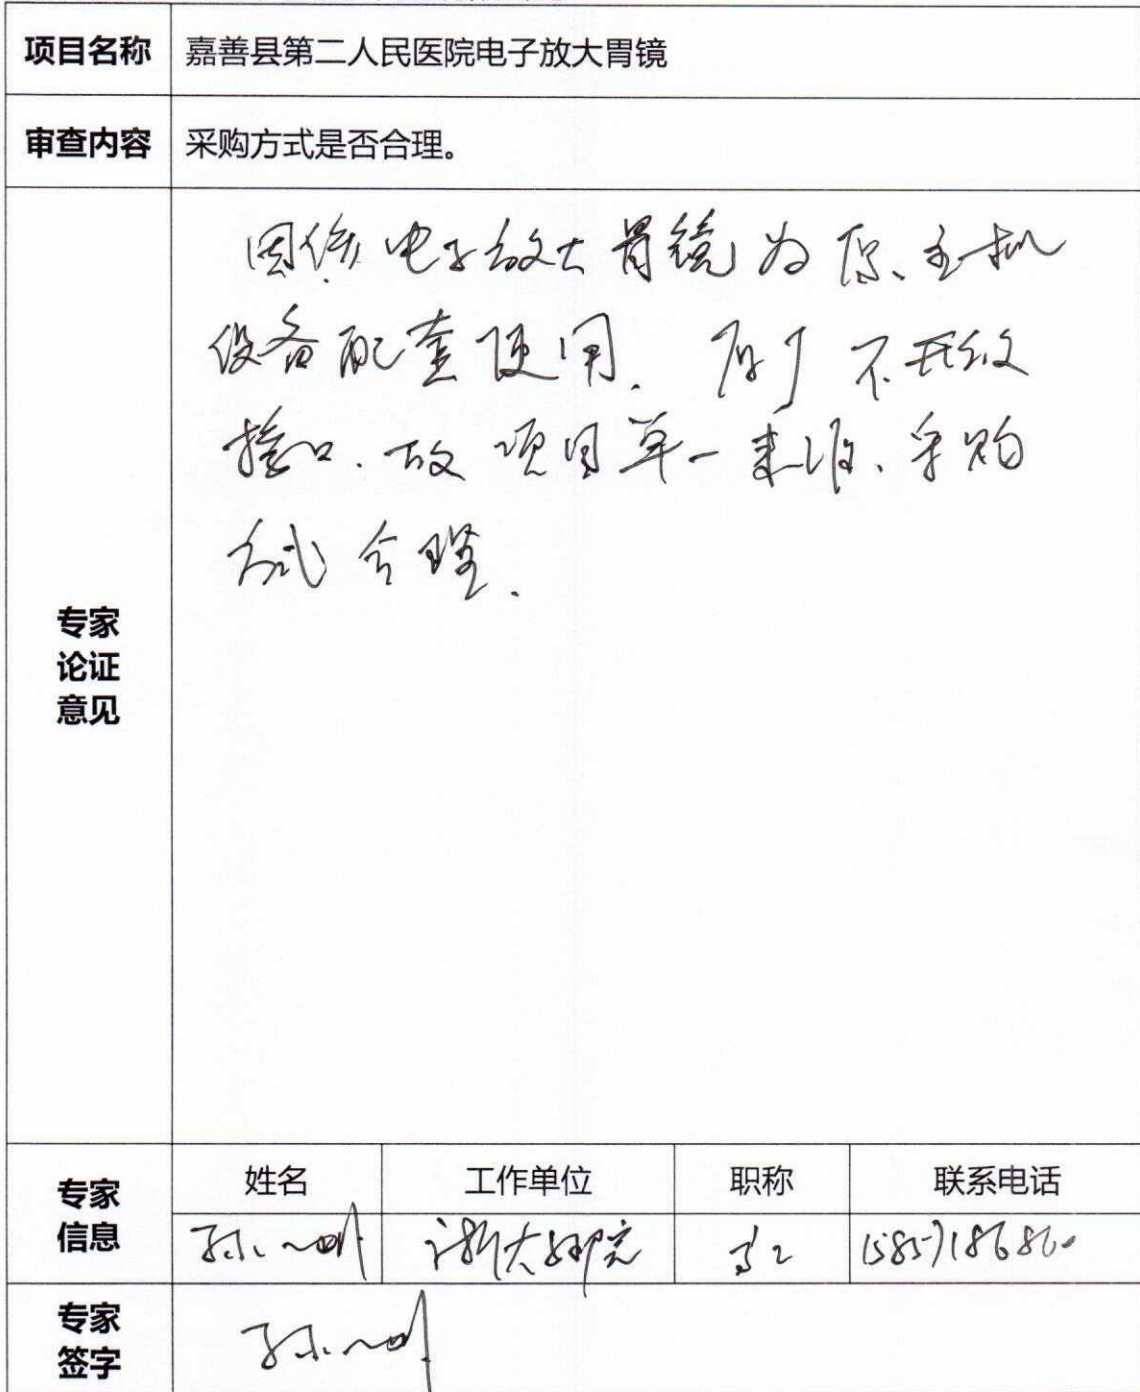 项目名称 嘉善县第二人民医院电子放大胃镜
审查内容 采购方式是否合理。
专家论证意见
因係电子放大胃镜为原主机
设备配套使用. 原厂不开放
接口. 故项目单一来源、采购
方式合理.
专家信息 姓名 工作单位 职称 联系电话
孙一明 浙大妇院 高工
专家签字 孙一明